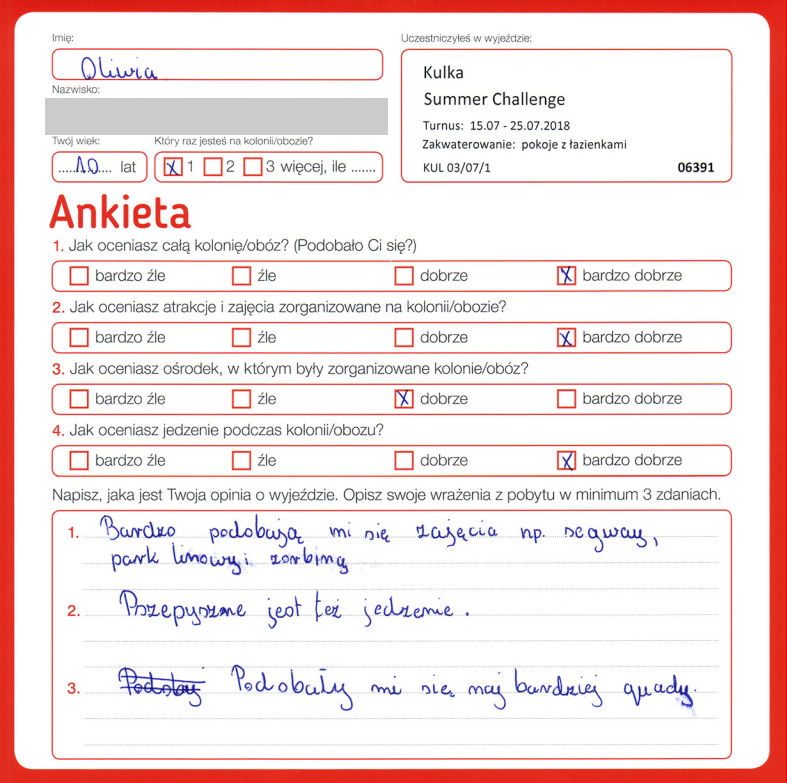 Imię:
Uczestniczyłeś w wyjeździe:
Oliwia
Nazwisko:
Kulka
Summer Challenge
Turnus: 15.07 - 25.07.2018
Zakwaterowanie: pokoje z łazienkami
KUL 03/07/1 06391
Twój wiek: Który raz jesteś na kolonii/obozie?
.....10.... lat X 1 2 3 więcej, ile .......
Ankieta
1. Jak oceniasz całą kolonię/obóz? (Podobało Ci się?)
bardzo źle źle dobrze X bardzo dobrze
2. Jak oceniasz atrakcje i zajęcia zorganizowane na kolonii/obozie?
bardzo źle źle dobrze X bardzo dobrze
3. Jak oceniasz ośrodek, w którym były zorganizowane kolonie/obóz?
bardzo źle źle X dobrze bardzo dobrze
4. Jak oceniasz jedzenie podczas kolonii/obozu?
bardzo źle źle dobrze X bardzo dobrze
Napisz, jaka jest Twoja opinia o wyjeździe. Opisz swoje wrażenia z pobytu w minimum 3 zdaniach.
1. Bardzo podobają mi się zajęcia np. segway,
park linowy i zorbing
2. Przepyszne jest też jedzenie.
3. Podobały mi się naj bardziej quady.